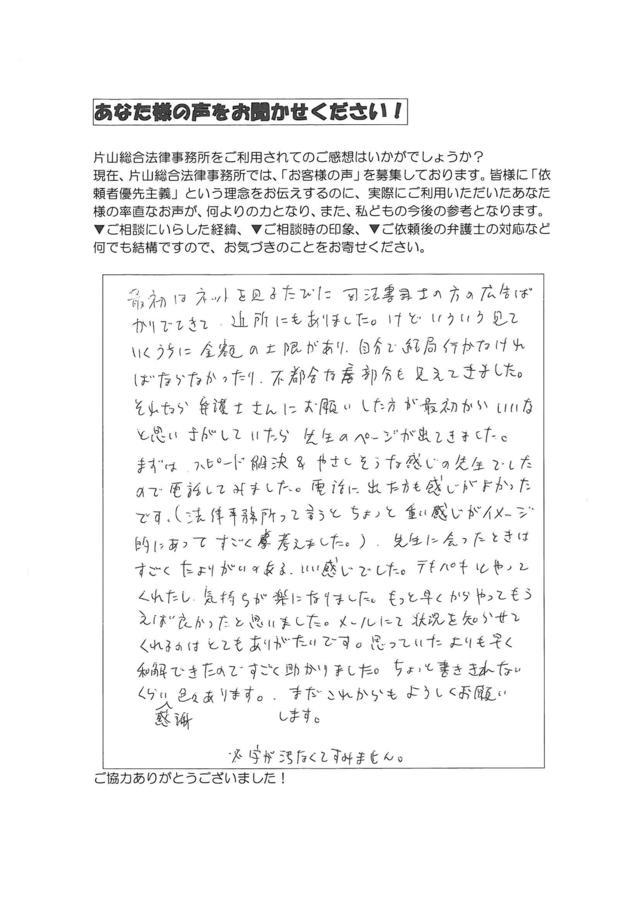 あなた様の声をお聞かせください！
片山総合法律事務所をご利用されてのご感想はいかがでしょうか？
現在、片山総合法律事務所では、「お客様の声」を募集しております。皆様に「依
頼者優先主義」という理念をお伝えするのに、実際にご利用いただいたあなた
様の率直なお声が、何よりの力となり、また、私どもの今後の参考となります。
▼ご相談にいらした経緯、▼ご相談時の印象、▼ご依頼後の弁護士の対応など
何でも結構ですので、お気づきのことをお寄せください。
最初はネットを見るたびに司法書士の方の広告ば
かりでてきて、近所にもありました。けどいろいろ見て
いくうちに金額の上限があり、自分で結局行かなけれ
ばならなかったり、不都合な部分も見えてきました。
それなら弁護士さんにお願いした方が最初からいいな
と思いさがしていたら先生のページが出てきました。
まずは、スピード解決&やさしそうな感じの先生でした
ので電話してみました。電話に出た方も感じがよかった
です。(法律事務所って言うとちょっと重い感じがイメージ
的にあってすごく考えました。)、先生に会ったときは
すごくたよりがいのある、いい感じでした。テキパキとやって
くれたし、気持ちが楽になりました。もっと早くからやってもら
えば良かったと思いました。メールにて状況を知らせて
くれるのはとてもありがたいです。思っていたよりも早く
和解できたのですごく助かりました。ちょっと書ききれない
くらい色々あります。まだこれからもよろしくお願い
感謝
します。
※字が汚なくてすみません。
ご協力ありがとうございました！